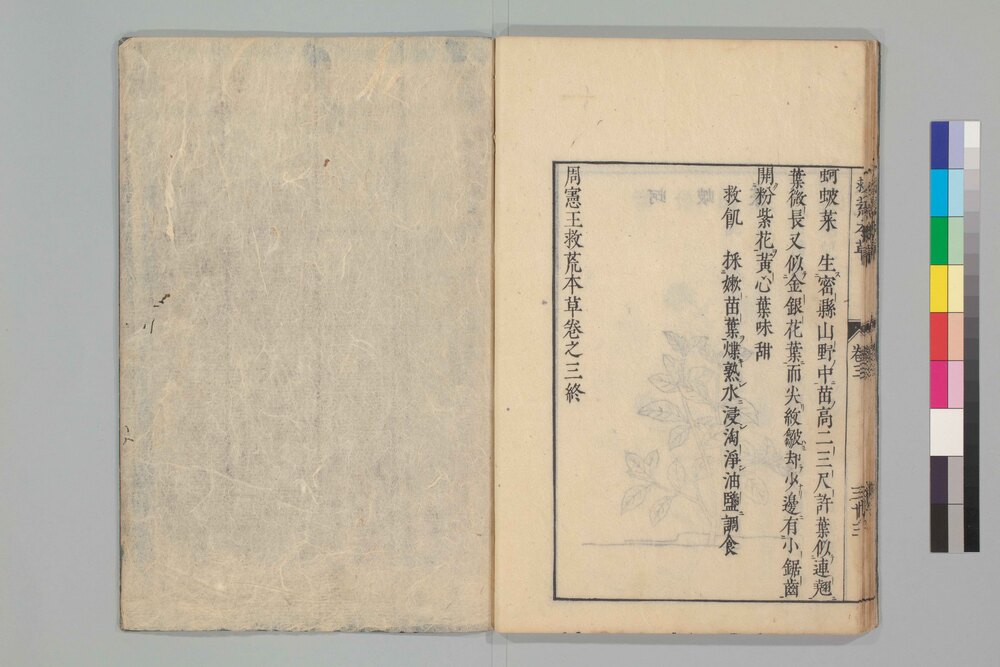 蚵蚾菜　生密縣山野中苗高二三尺許葉似連翹
葉微長又似金銀花葉而尖紋皺却少邊有小鋸齒
開粉紫花黃心葉味甜
救飢　採嫩苗葉煠熟水浸淘淨油鹽調食
周憲王救荒本草卷之三終
卷三